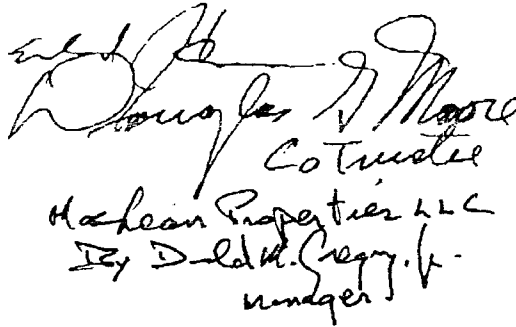 Douglas G Moore
CoTrustee
MacLean Properties LLC
By Donald M. Gregory, Jr.
Manager